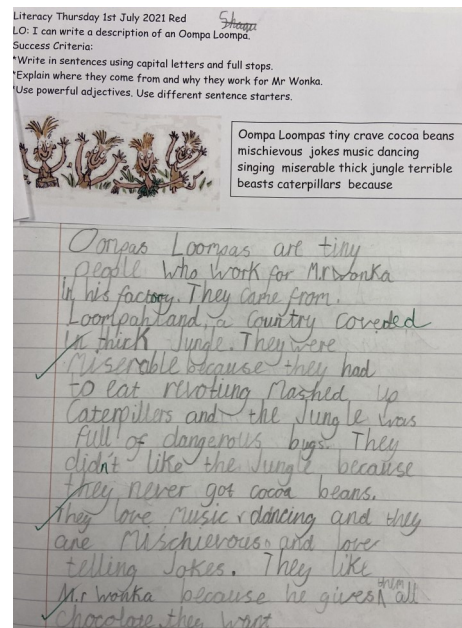 Literacy Thursday 1st July 2021 Red
LO: I can write a description of an Oompa Loompa.
Success Criteria:
*Write in sentences using capital letters and full stops.
*Explain where they come from and why they work for Mr Wonka.
*Use powerful adjectives. Use different sentence starters.
Oompa Loompas tiny crave cocoa beans
mischievous jokes music dancing
singing miserable thick jungle terrible
beasts caterpillars because
Oompas Loompas are tiny
people who work for Mr Wonka
in his factory. They came from.
Loompahland, a country coveded
in thick Jungle. They were
miserable because they had
to eat revotiung mashed up
Caterpillers and the Jungle was
full of dangerous bugs. They
didn't like the Jungle because
they never got cocoa beans.
They love music & dancing and they
are mischievous and love
telling Jokes. They like
Mr Wonka because he gives them all
chocolate they want